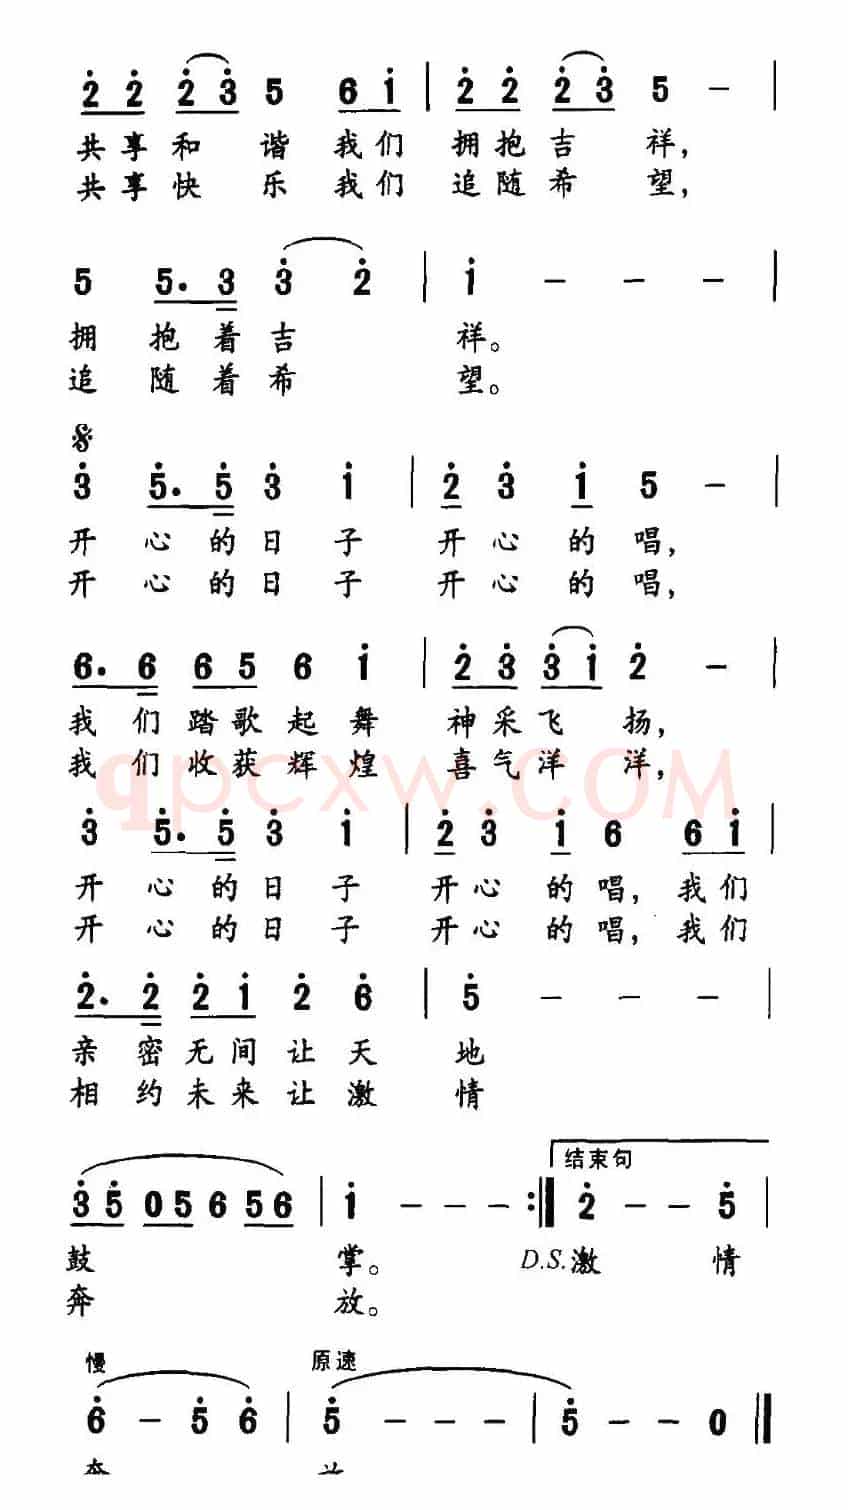 2 2 2 3 5 6 1 | 2 2 2 3 5 — |
共享和谐我们 拥抱吉祥，
共享快乐我们 追随希望，
5 5. 3 3 2 | 1 — — — |
拥抱着吉祥。
追随着希望。
3 5. 5 3 1 | 2 3 1 5 — |
开心的日子 开心的唱，
开心的日子 开心的唱，
6. 6 6 5 6 1 | 2 3 3 1 2 — |
我们踏歌起舞 神采飞扬，
我们收获辉煌 喜气洋洋，
qpcxw.COM
3 5. 5 3 1 | 2 3 1 6 6 1 |
开心的日子 开心的唱，我们
开心的日子 开心的唱，我们
2. 2 2 1 2 6 | 5 — — — |
亲密无间让天地
相约未来让激情
结束句
3 5 0 5 6 5 6 | 1 — — — :| 2 — — 5 |
鼓掌。 D.S. 激情
奔放。
慢 原速
6 — 5 6 | 5 — — — | 5 — — 0 |